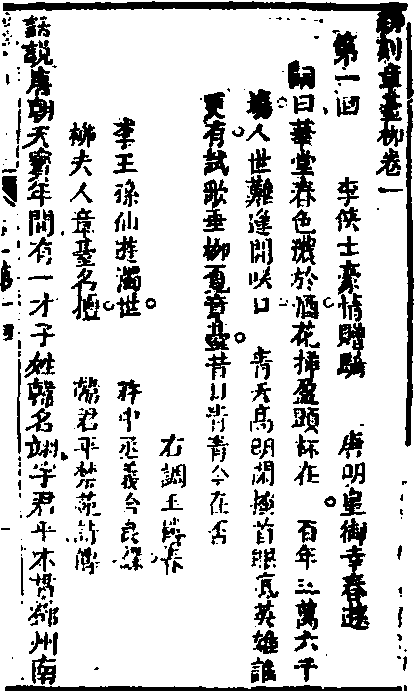 新刻章臺柳卷一
第一回 李俠士豪情贈 唐明皇御幸春
詞曰華堂春色濃於酒花插盈頭杯在 百年三萬六千
場人世難逢開咲口 青天高朗閑搔首眼底英雄誰
更有試歌垂柳覓章臺昔日青青今在否
右調玉樓春
李王孫仙遊濁世 許中丞義合良緣
柳夫人章臺名擅 韓君平禁苑詩傳
話說唐朝天寶年間有一才子姓韓名翃字君平本貫鄧州南